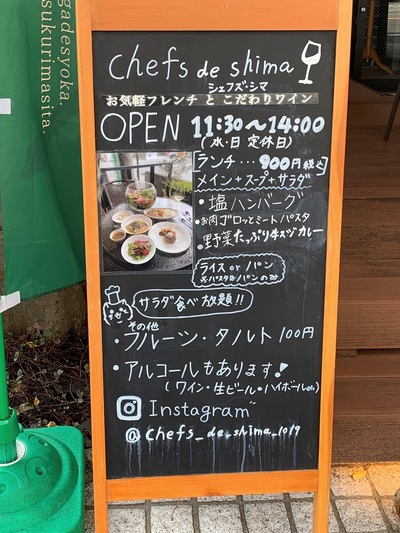 gadesyoka.
sukurimasita.
chefs de shima
シェフズ・シマ
お気軽フレンチ と こだわりワイン
OPEN 11:30〜14:00
(水・日 定休日)
ランチ・・・900円(税込)
メイン+スープ+サラダ
・塩ハンバーグ
・お肉ゴロッとミートパスタ
・野菜たっぷり牛スジカレー
ライス or パン
※パスタはパンのみ
サラダ食べ放題!!
その他
・フルーツ・タルト 100円
・アルコールもあります!
(ワイン・生ビール・ハイボールetc)
Instagram
@chefs_de_shima_1019